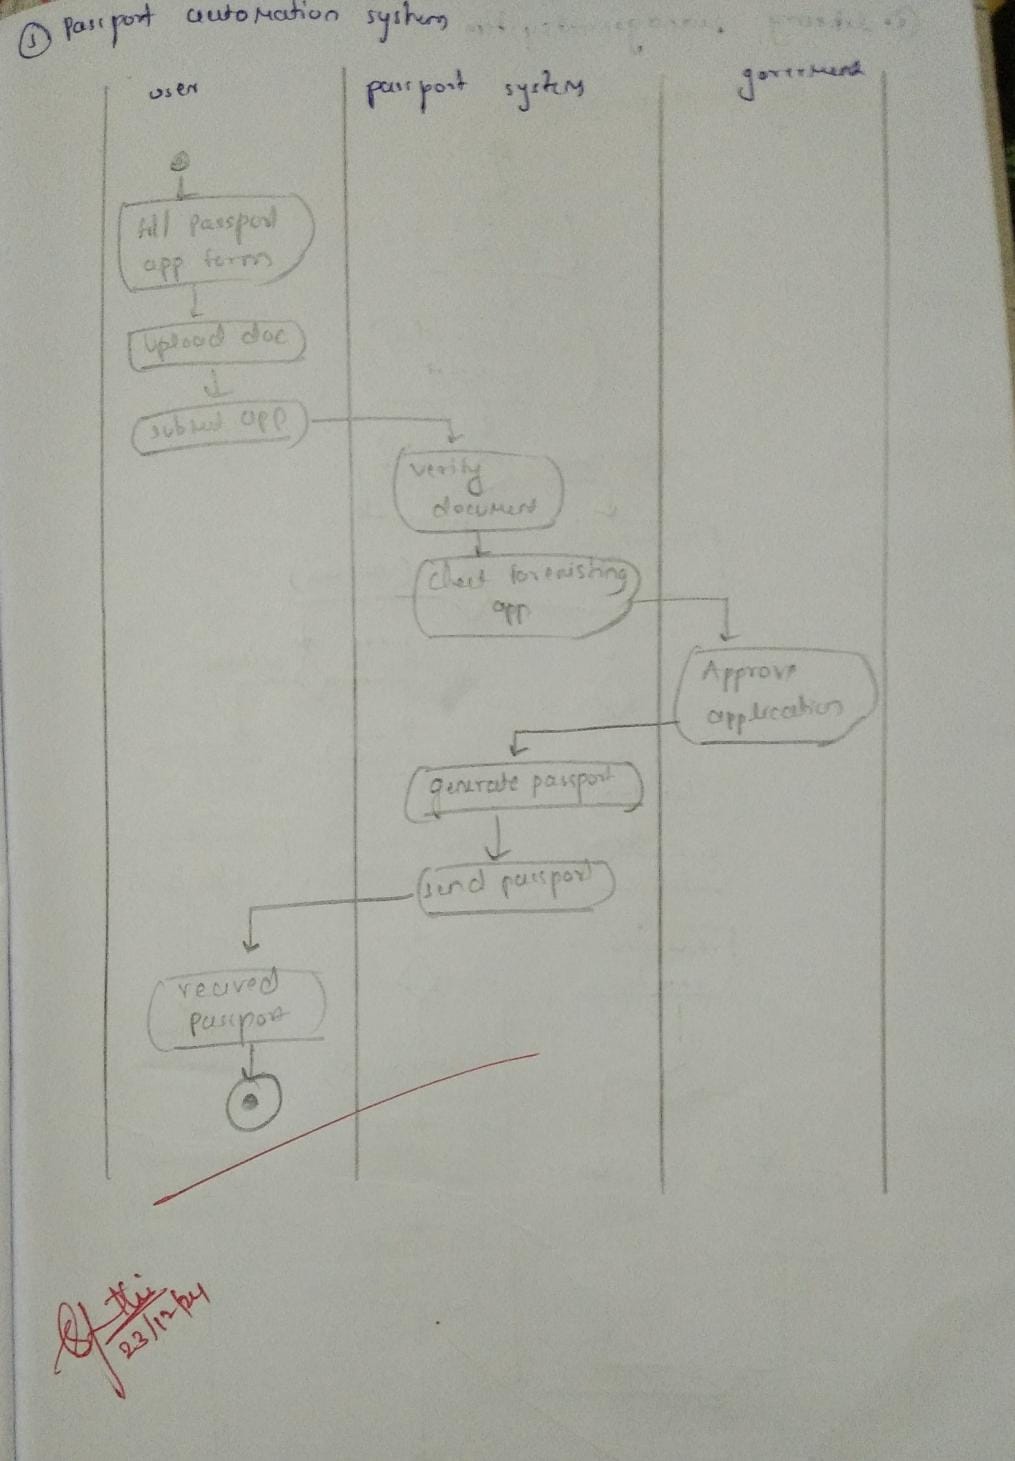 ① Passport automation system
user
passport system
government
fill passport
app form
upload doc
submit app
verify
document
check for existing
app
Approve
application
generate passport
send passport
recived
passport
23/12/24